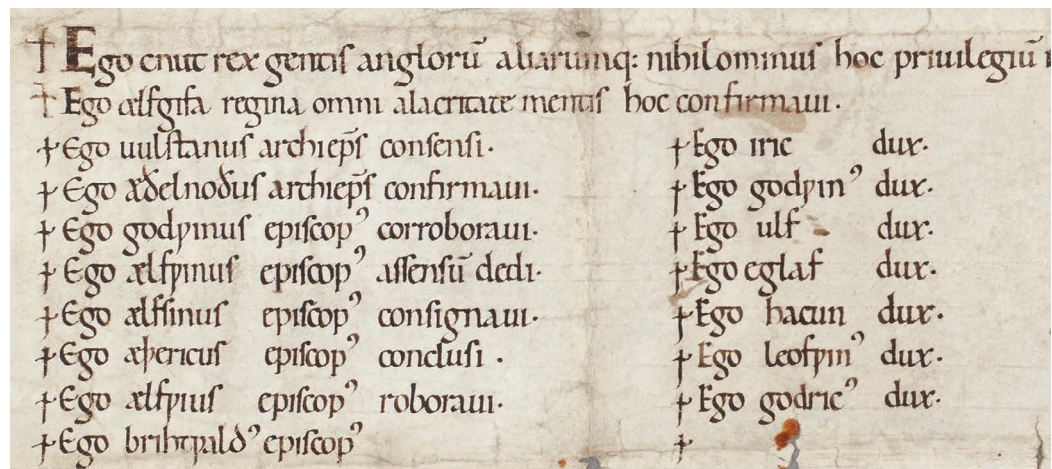 † Ego cnut rex gentis angloru̅ aliarumq: nihilominus hoc priuilegiu̅
† Ego ælfgifa regina omni alacritate mentis hoc confirmaui.
† Ego uulstanus archiep̅s consensi.
† Ego æðelnoðus archiep̅s confirmaui.
† Ego godƿinus episcopꝰ corroboraui.
† Ego ælfƿinus episcopꝰ assensu̅ dedi.
† Ego ælfsinus episcopꝰ consignaui.
† Ego æþericus episcopꝰ conclusi.
† Ego ælfƿius episcopꝰ roboraui.
† Ego brihtƿaldꝰ episcopꝰ
† Ego iric dux.
† Ego godƿinꝰ dux.
† Ego ulf dux.
† Ego eglaf dux.
† Ego hacun dux.
† Ego leofƿinꝰ dux.
† Ego godricꝰ dux.
†